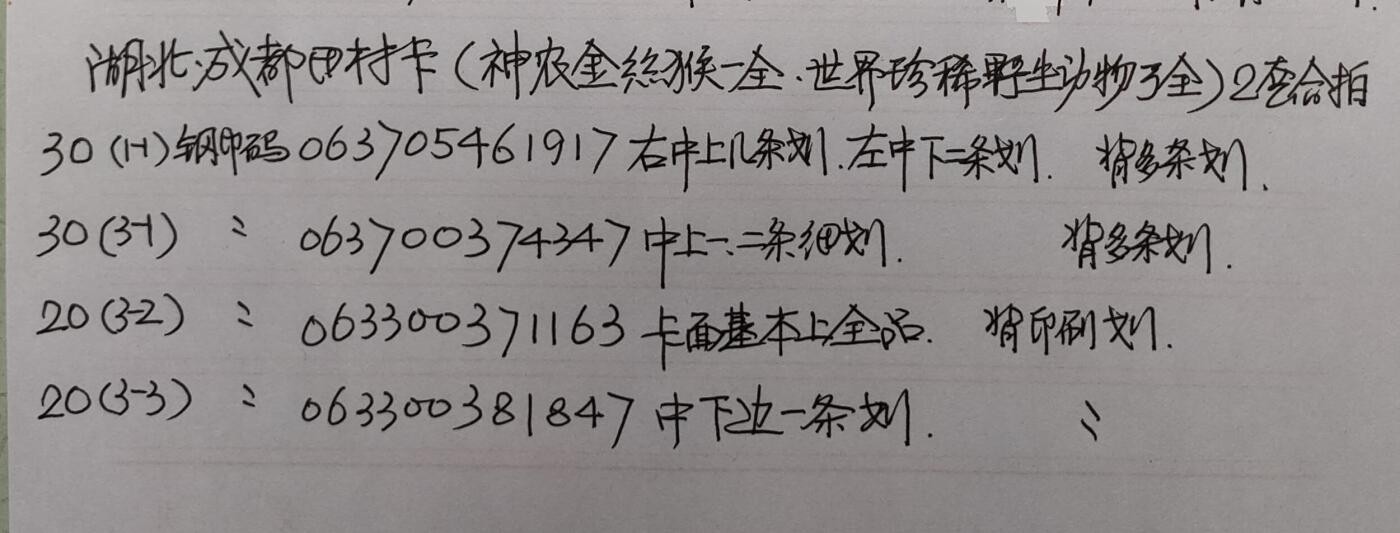 湖北.成都田村卡(神农金丝猴一全.世界珍稀野生动物3全)2套合拍
30(1-1)钢印码063705461917右中上几条划.左中下二条划. 背多条划.
30(3-1) 〃 063700374347中上一.二条细划. 背多条划.
20(3-2) 〃 063300371163卡面基本上全品. 背印刷划.
20(3-3) 〃 063300381847中下边一条划. 〃